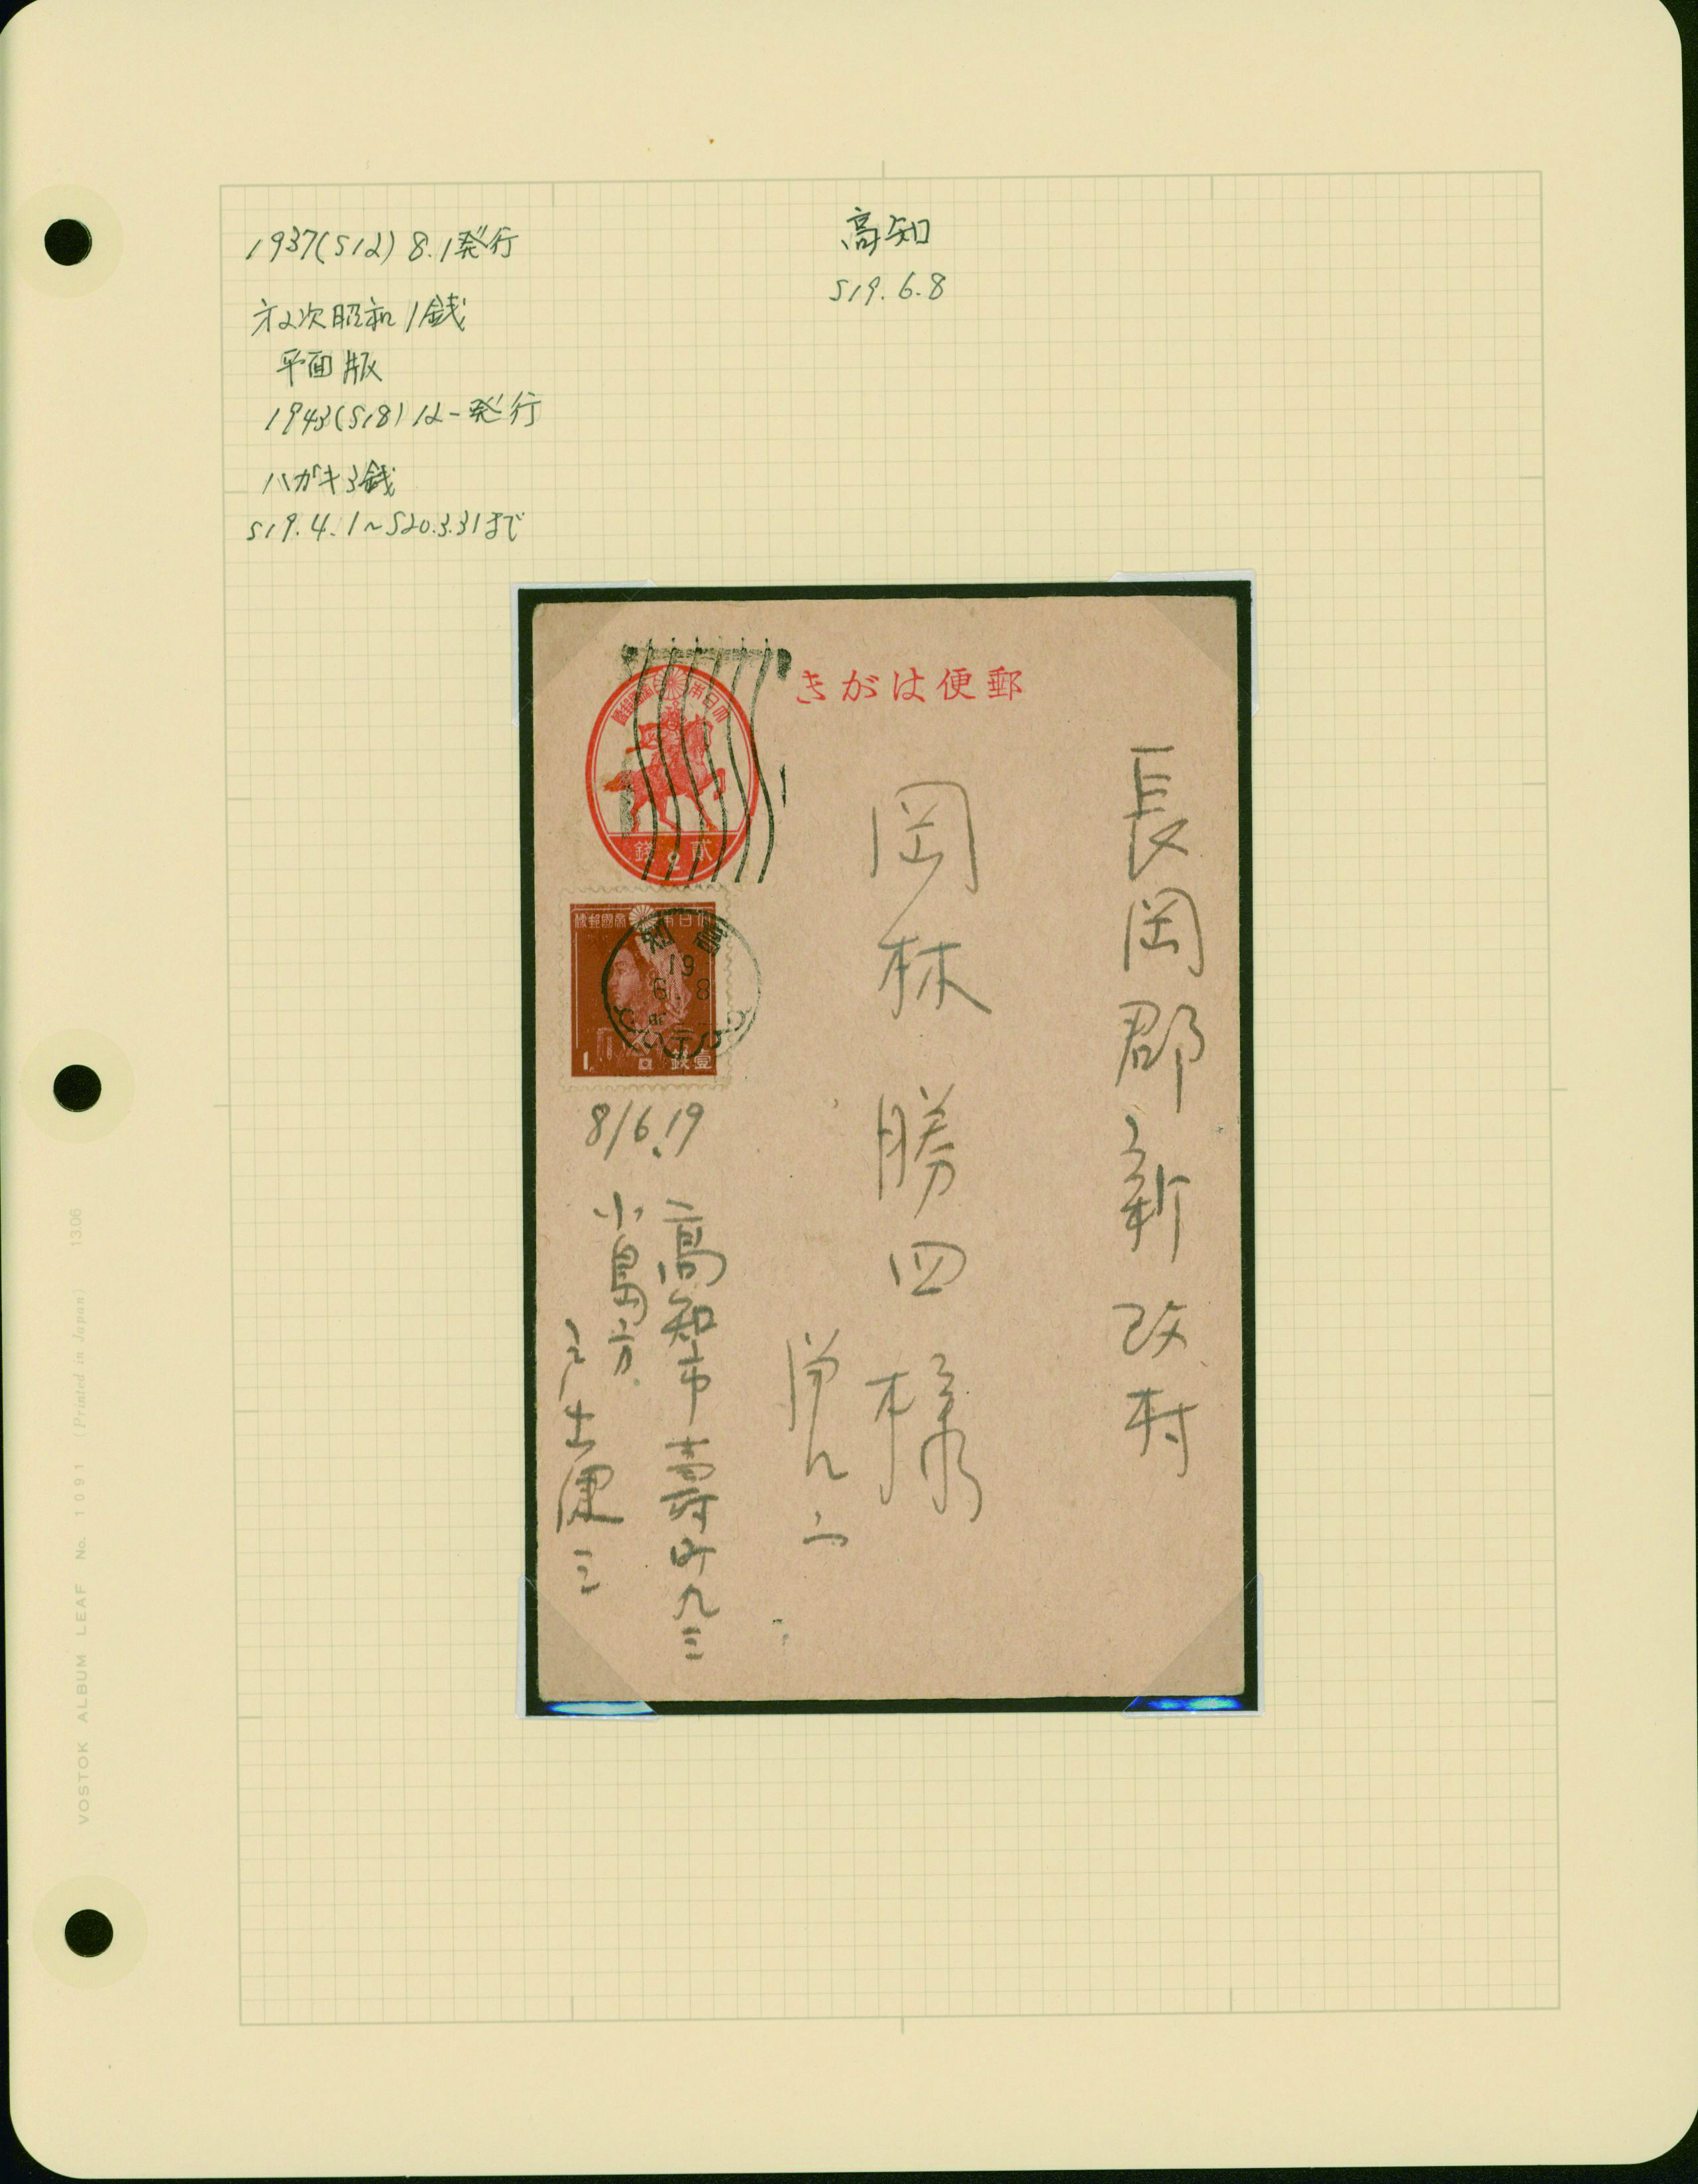 1937(S12) 8.1発行
才2次昭和1銭
平面版
1943(S18)12-発行
ハガキ3銭
S19.4.1~S20.3.31まで
高知
S19.6.8
郵便はがき
大日本帝國郵便
貳銭
2
大日本帝國郵便
高知
19
6.8
1
壹銭
長岡郡新改村
岡林勝四様
8/6.19
高知市壽町九三
小島方
VOSTOK ALBUM LEAF No. 1091 (Printed in Japan) 1306